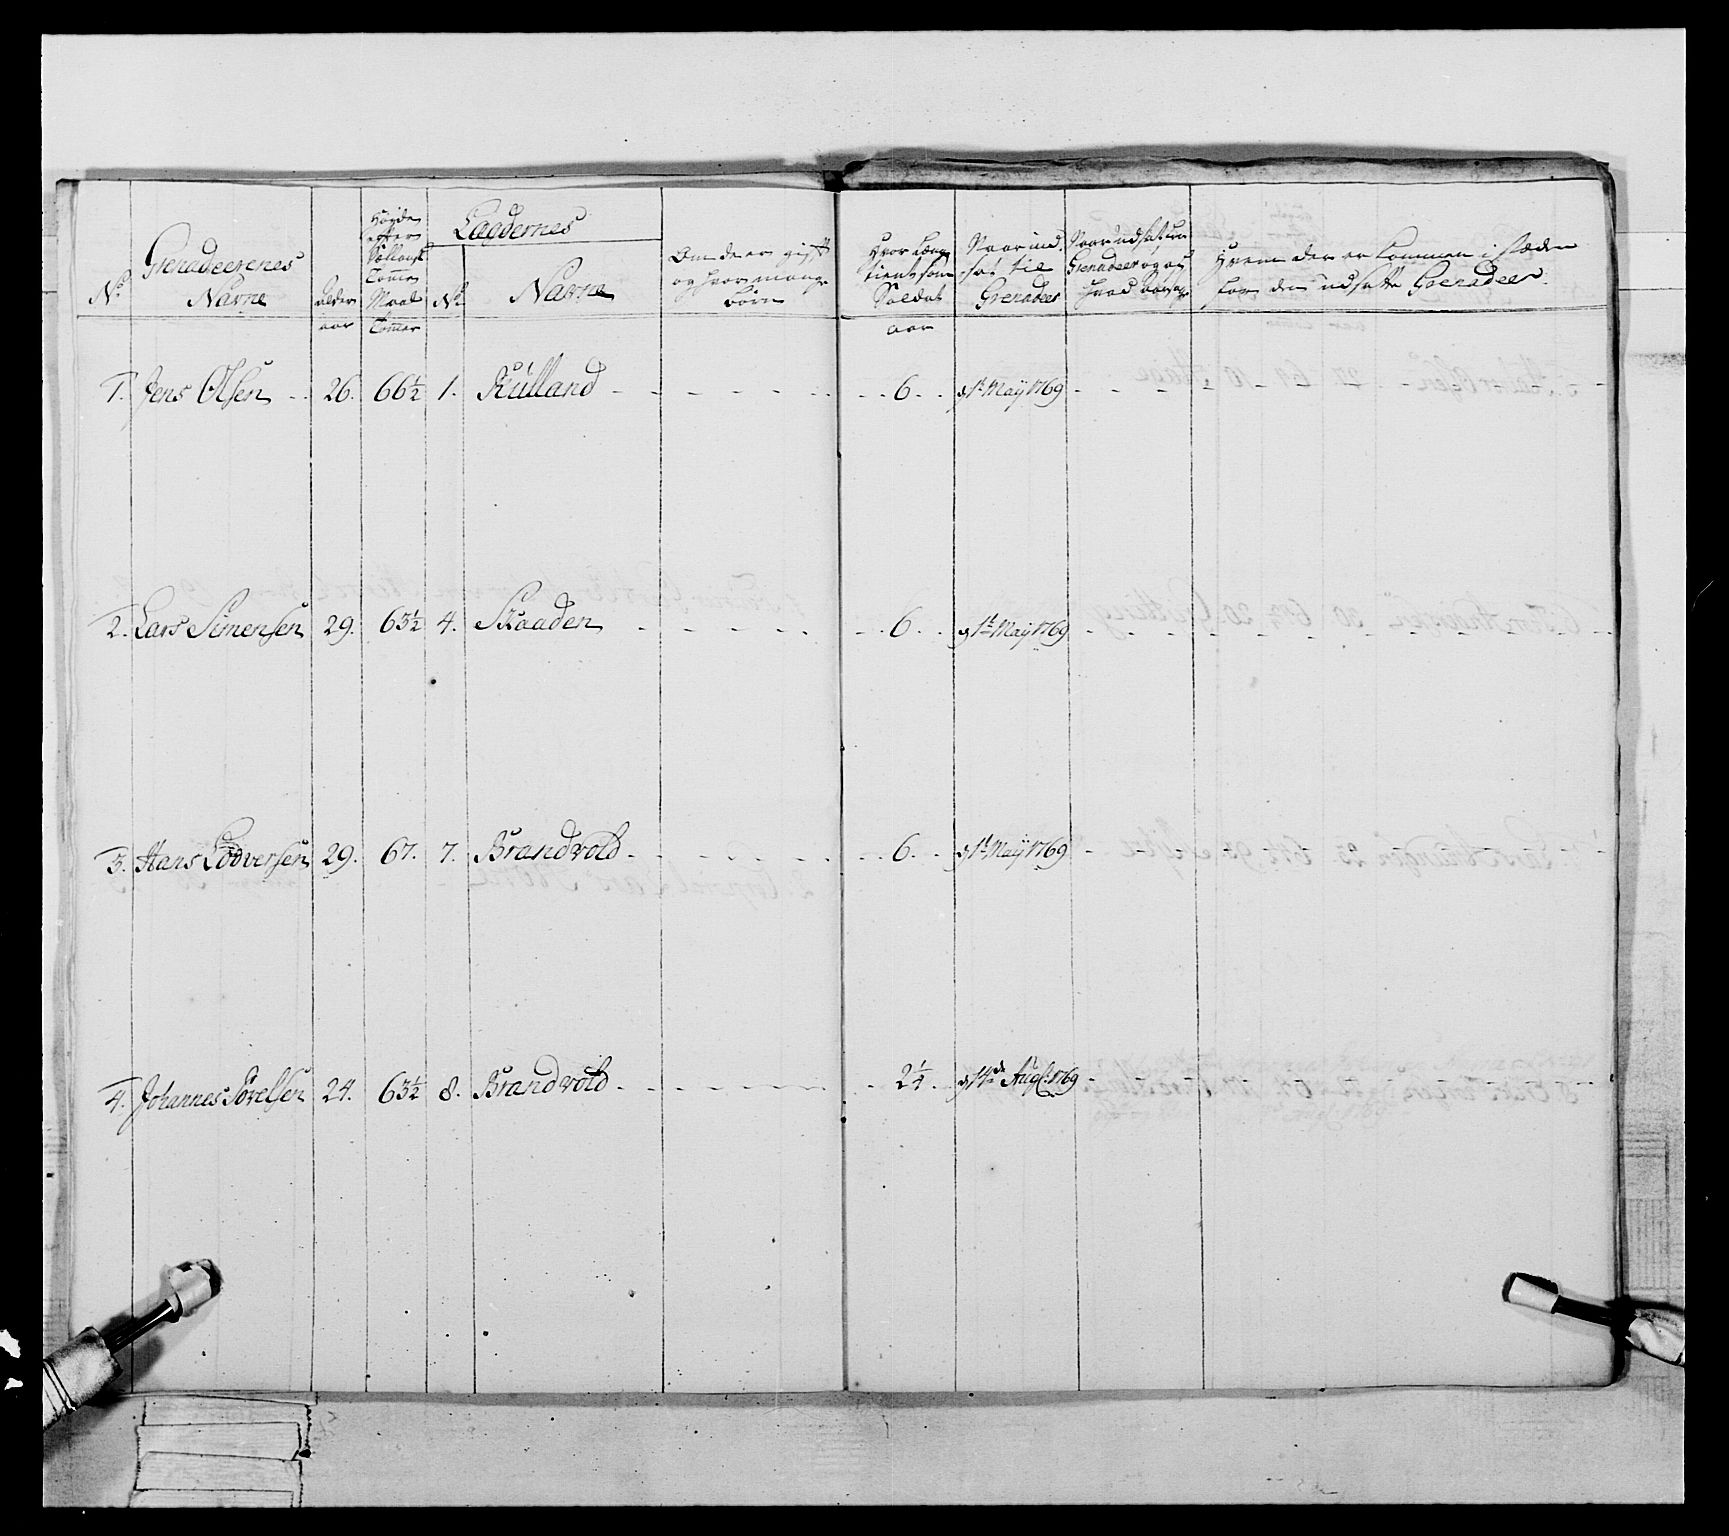 No. Grenadeerenes Navne
Alder aar
Høyde efter Siellansk Tomme Maal Tommer
Lægdernes
No. Navne
Om de ere gift og hvor mange Børn
Hvor længe tient som Soldat aar
Naar ind sat til Grenadeer
Naar udsat som Grenadeer og af hvad aarsag
Hvem der er kommen i stæden for den udsatte Grenadeer.
1. Jens Olsen 26. 66½ 1. Kulland 6. d 1t Maÿ 1769
2. Lars Simensen 29. 63½ 4. Skaaden 6. d 1t Maÿ 1769
3. Hans Lodversen 29. 67. 7. Brandvold 6. d 1t Maÿ 1769
4. Johannes Sorelsen 24. 63½ 8. Brandvold 2¼. d 14de Aug: 1769